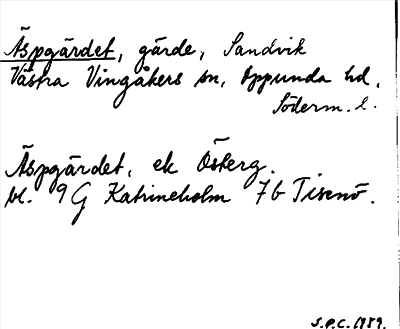 Äspgärdet, gärde, Sandvik
Västra Vingåkers sn, Oppunda hd,
Söderm. l.
Äspgärdet, ek Österg.
bl. 9G Katrineholm 7b Tisenö.
S.P.C. 1989.